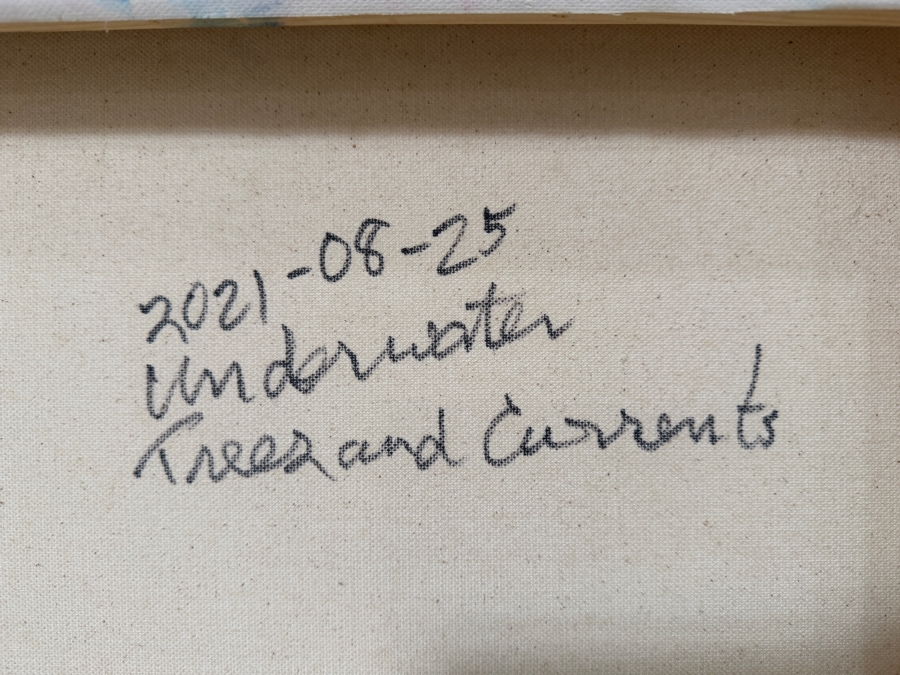 2021-08-25
Underwater
Trees and Currents